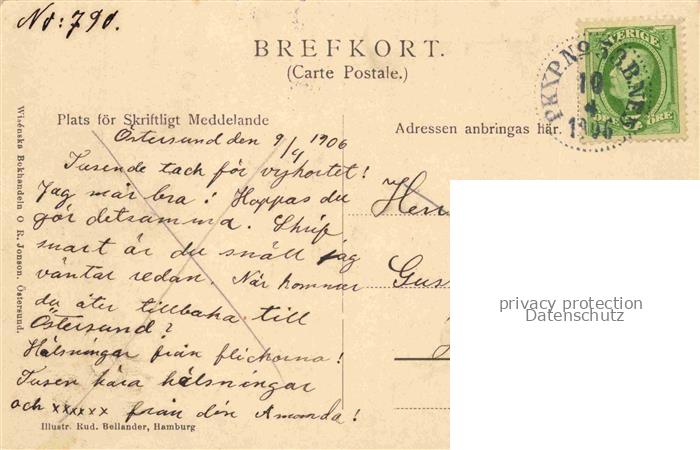 No: 790.
BREFKORT.
(Carte Postale.)
SVERIGE
PKXP. No
10
4
1906
ÖRE
Plats för Skriftligt Meddelande
Adressen anbringas här.
Östersund den 9/4 1906
Tusende tack för vykortet!
Jag mår bra! Hoppas du
gör detsamma. Skrif
snart är du snäll jag
väntar redan. När kommer
du åter tillbaka till
Östersund?
Hälsningar från flickorna!
Tusen kära hälsningar
och xxxxxx från din Amanda!
Herr
Gus
Wisénska Bokhandeln O R. Jonson, Östersund.
Illustr. Rud. Bellander, Hamburg
privacy protection
Datenschutz